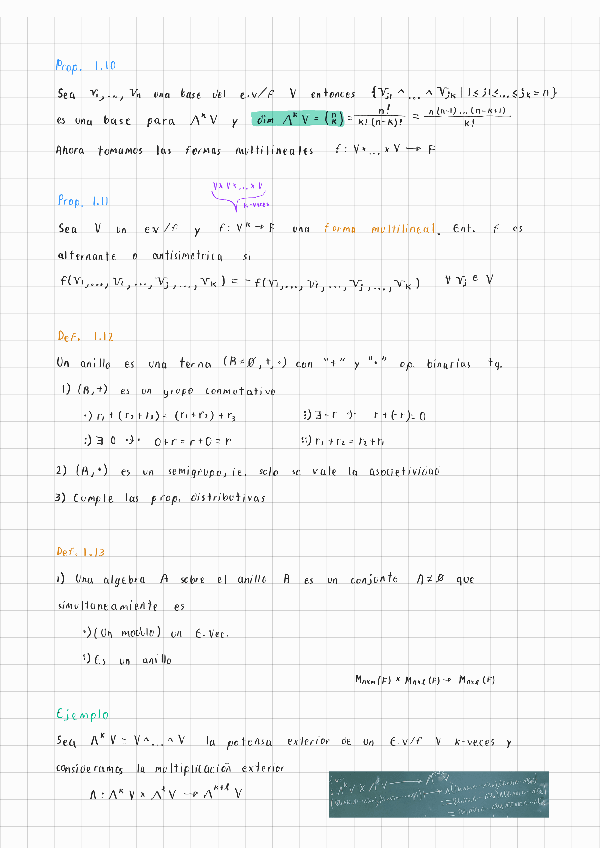 Prop. 1.10
Sea v₁,..., vₙ una base del e.v/F V entonces {v_j₁ ^ ... ^ v_jk | 1≤j1≤...≤jk=n}
es una base para Λᵏ V y dim Λᵏ V = (n k) = n!/k!(n-k)! = n(n-1)...(n-k+1)/k!
Ahora tomamos las formas multilineales f: V×...×V → F
V×V×...×V
k-veces
Prop. 1.11
Sea V un ev/F y f: Vᵏ → F una forma multilineal. Ent. f es
alternante o antisimetrica si
f(v₁,..., vᵢ,..., vⱼ,..., vₖ) = -f(v₁,..., vᵢ,..., vⱼ,..., vₖ) ∀ vⱼ ∈ V
Def. 1.12
Un anillo es una terna (R=∅, +, ·) con "+" y "·" op. binarias tq.
1) (R,+) es un grupo conmutativo
·) r₁ + (r₂ + r₃) = (r₁ + r₂) + r₃
⋮) ∃ -r ·)· r+(-r)=0
:) ∃ 0 ·)· 0+r = r+0 = r
::) r₁ + r₂ = r₂ + r₁
2) (R,·) es un semigrupo, ie. solo se vale la asocietividad
3) Cumple las prop. distributivas
Def. 1.13
1) Una algebra A sobre el anillo R es un conjunto A≠∅ que
simultaneamiente es
·) (Un modulo) un E.Vec.
:) Es un anillo
Mnxm(F) × Mmxl(F) → Mnxl(F)
Ejemplo
Sea Λᵏ V = V ^ ... ^ V la potensa exterior de un E.v/F V k-veces y
consideramos la multiplicación exterior
Λ: Λᵏ V × Λˡ V → Λᵏ⁺ˡ V